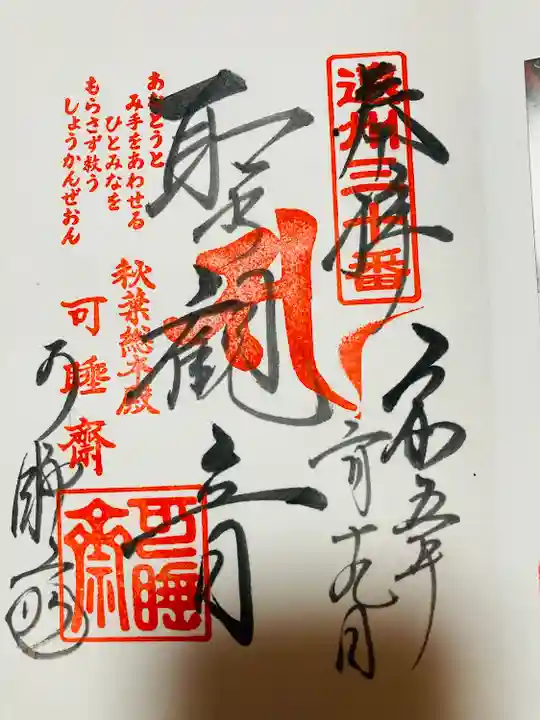 奉拝
遠州三十番
令和五年
月十九日
聖観音
あなとうと
み手をあわせる
ひとみなを
もらさず救う
しょうかんぜおん
秋葉総本殿
可睡齋
可睡斎
可睡齋